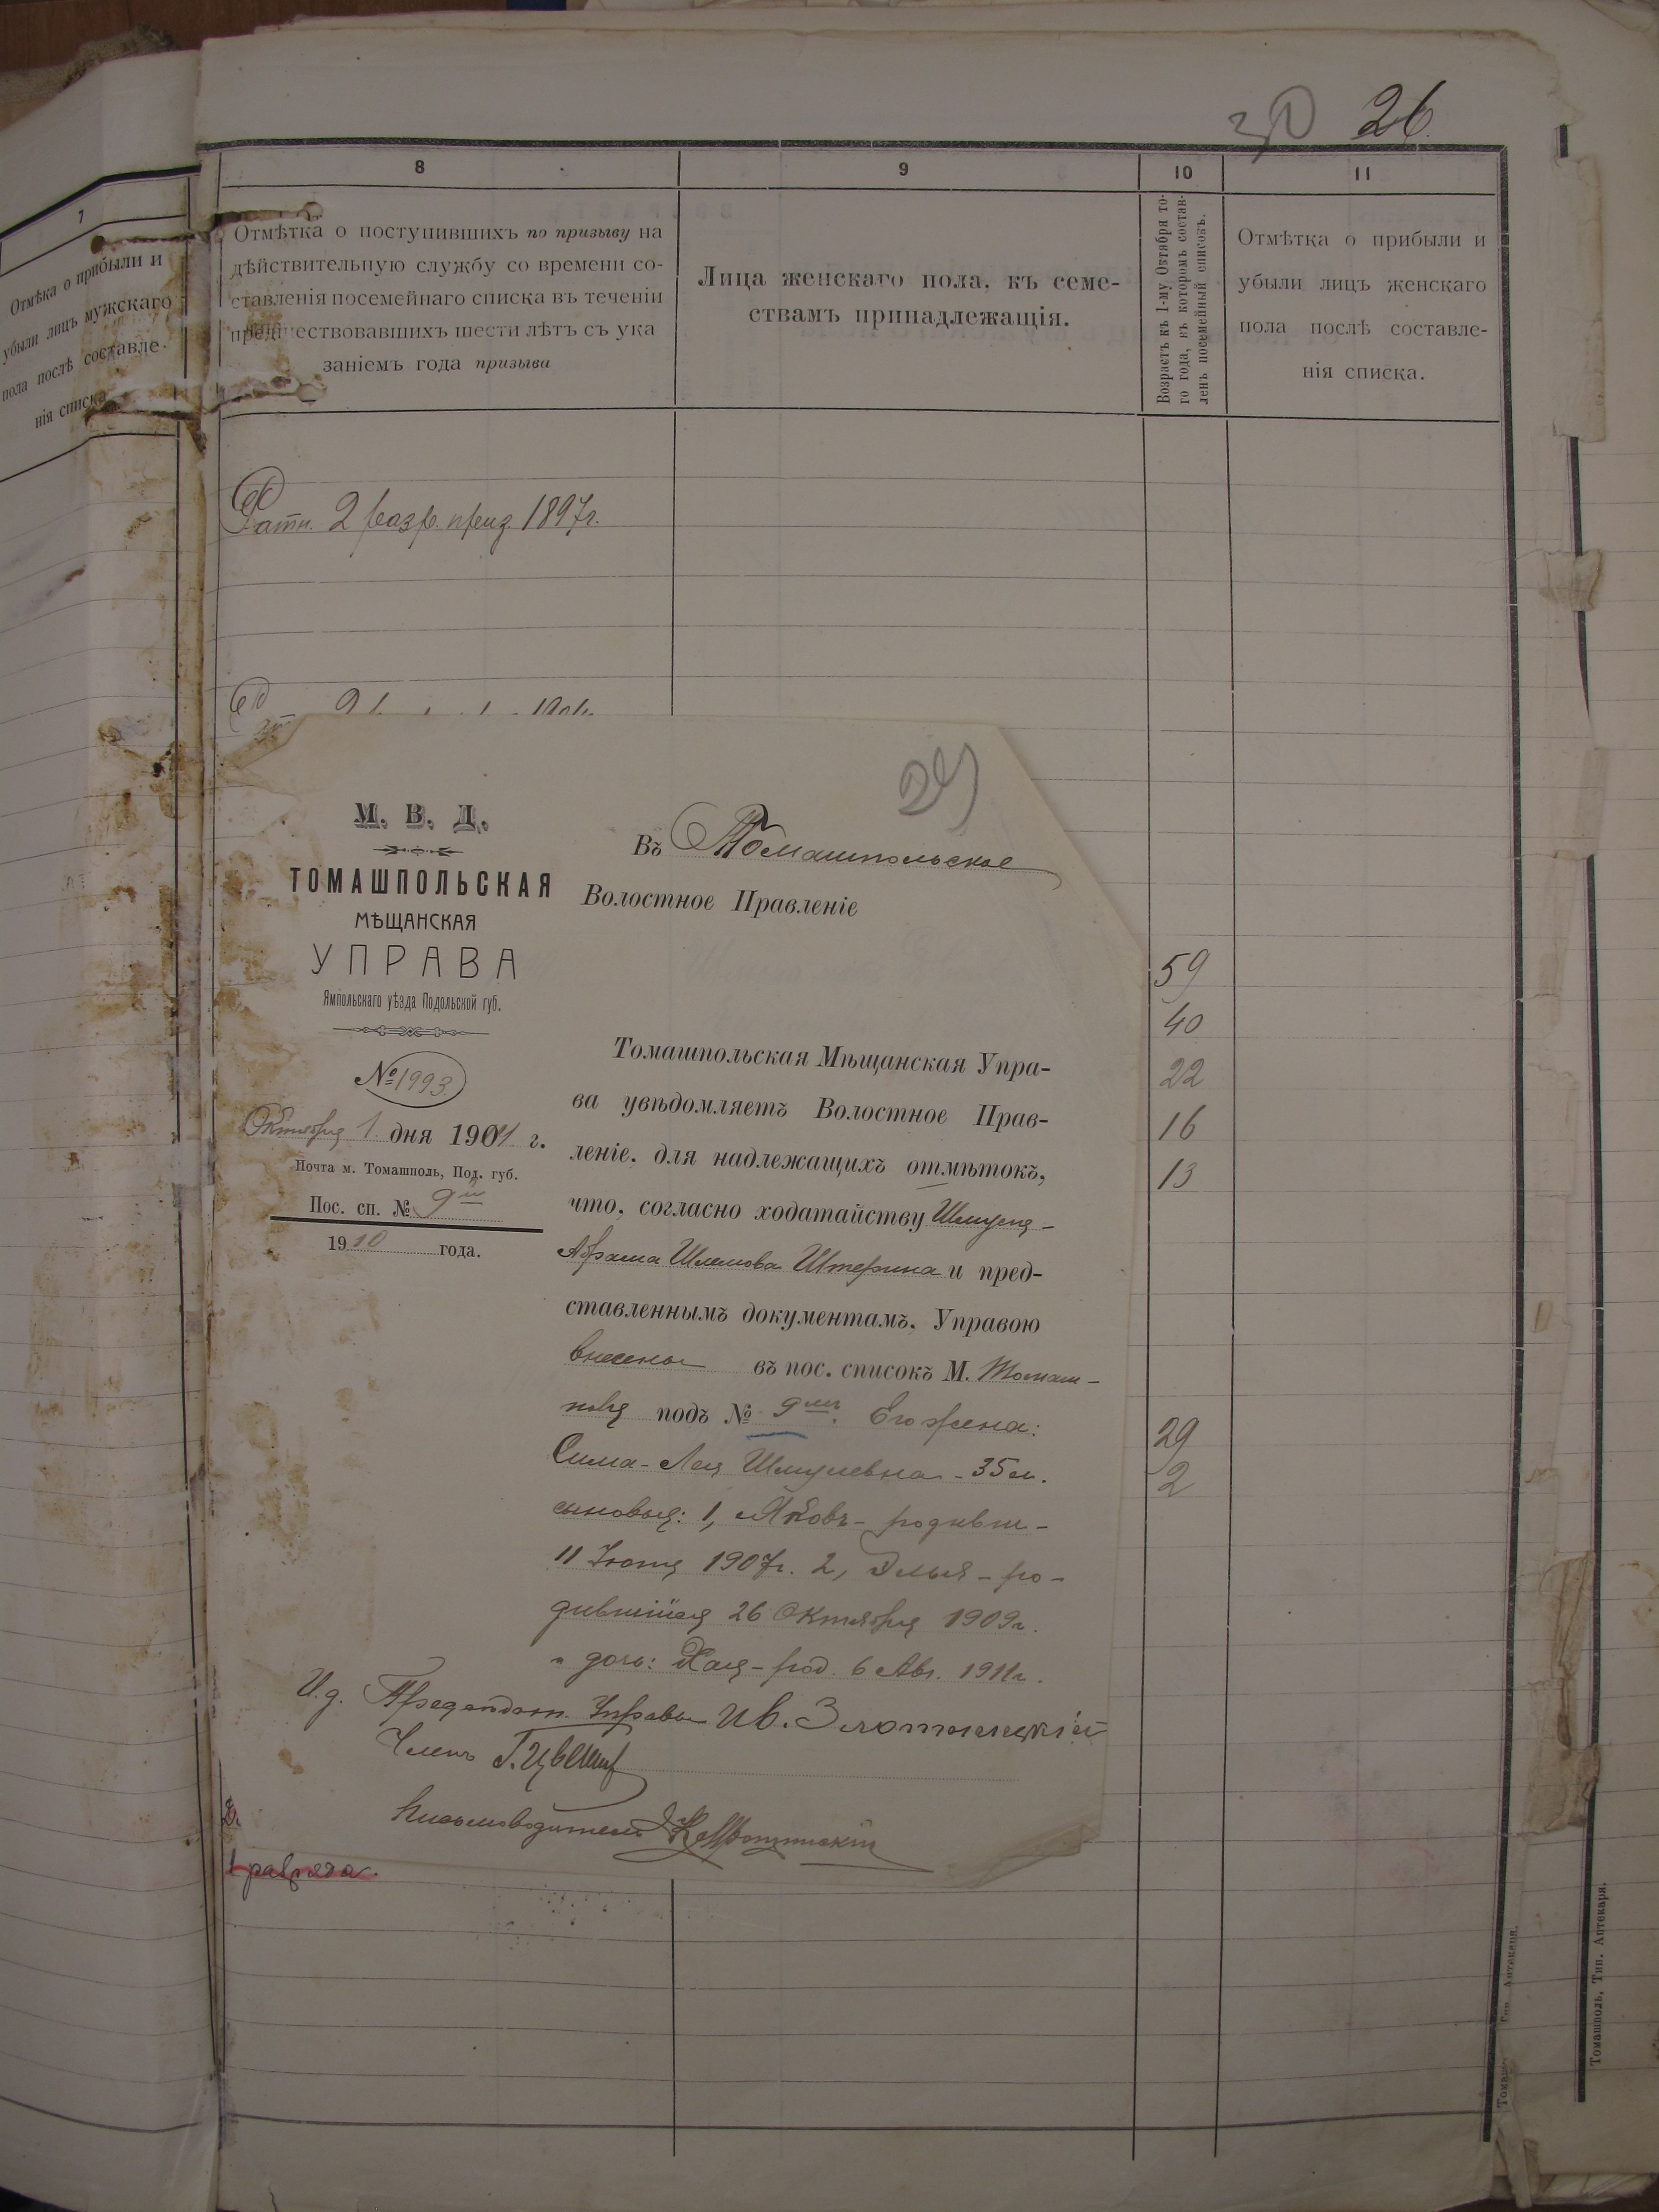 26
7
Отмѣтка о прибыли и
убыли лицъ мужскаго
пола послѣ составле-
нія списка
8
9
10
11
Отмѣтка о поступившихъ по призыву на
дѣйствительную службу со времени со-
ставленія посемейнаго списка въ теченіи
предшествовавшихъ шести лѣтъ съ ука
заніемъ года призыва
Лица женскаго пола, къ семе-
ствамъ принадлежащія.
Возрастъ къ 1-му Октября то-
го года, въ которомъ состав-
ленъ посемейный списокъ.
Отмѣтка о прибыли и
убыли лицъ женскаго
пола послѣ составле-
нія списка.
Ратн. 2 разр. приз. 1897г.
М. В. Д.
ТОМАШПОЛЬСКАЯ
МѢЩАНСКАЯ
УПРАВА
Ямпольскаго уѣзда Подольской губ.
№ 1993
Октября 1 дня 1911 г.
Почта м. Томашполь, Под. губ.
Пос. сп. № 9
1910 года.
Въ Томашпольское
Волостное Правленіе
Томашпольская Мѣщанская Упра-
ва увѣдомляетъ Волостное Прав-
леніе. для надлежащихъ отмѣтокъ,
что, согласно ходатайству Шмуля-
Абрама Шлемова Штерина и пред-
ставленнымъ документамъ, Управою
внесены въ пос. списокъ М. Томаш-
поля подъ № 9 Его жена:
Сима-Лея Шмулевна - 35 л.
сыновья: 1, Яковъ - родивш-
11 Іюня 1907г. 2, Элья - ро-
дившійся 26 Октября 1909г.
и дочь: Хая - род. 6 Авг. 1911г.
И.д. Председат. Управы Ив. Злотницкій
Членъ
Письмоводитель
59
40
22
16
13
29
2
1 разряда.
Томашполь, Тип. Аптекаря.